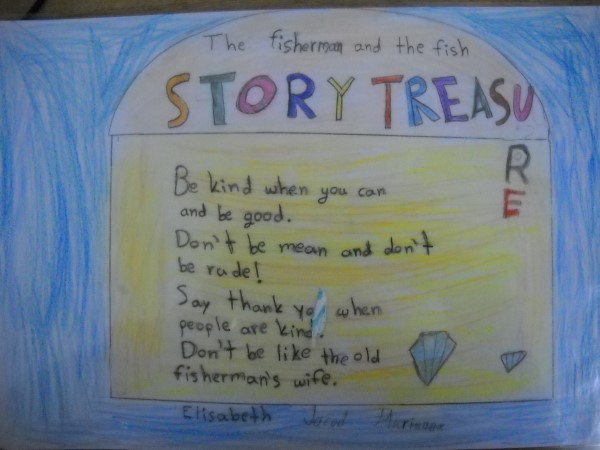 The fisherman and the fish
STORY TREASURE
Be kind when you can
and be good.
Don't be mean and don't
be rude!
Say thank you when
people are kind.
Don't be like the old
fisherman's wife.
Elisabeth